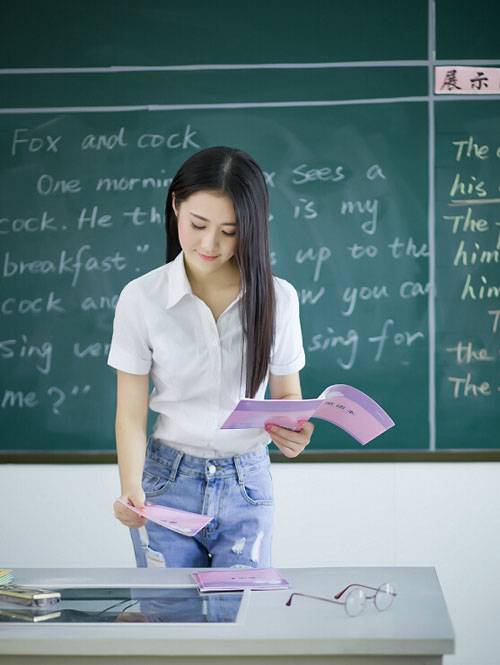 Fox and cock
One sees a
cock. He is my
breakfast." up to the
cock you can
sing sing for
me?"
展示
The
his
The
him
him
the
The